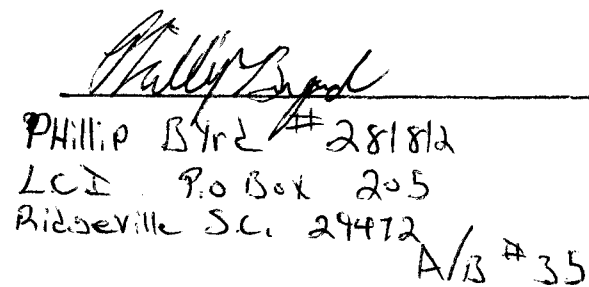 Phillip Byrd
PHilliP BYrd # 281812
LCI P.o Box 205
Ridgeville S.C. 29472
A/B # 35